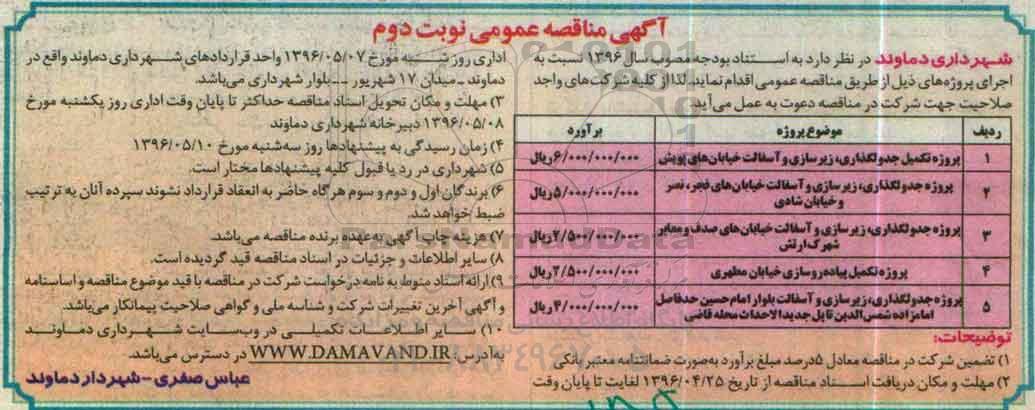 آگهی مناقصه عمومی نوبت دوم
شهرداری دماوند در نظر دارد به استناد بودجه مصوب سال ۱۳۹۶ نسبت به
اجرای پروژه‌های ذیل از طریق مناقصه عمومی اقدام نماید. لذا از کلیه شرکت‌های واجد
صلاحیت جهت شرکت در مناقصه دعوت به عمل می‌آید.
ردیف موضوع پروژه برآورد
۱ پروژه تکمیل جدولگذاری، زیرسازی و آسفالت خیابان‌های پویش ۶/۰۰۰/۰۰۰/۰۰۰ریال
۲ پروژه جدولگذاری، زیرسازی و آسفالت خیابان‌های فجر، نصر ۵/۰۰۰/۰۰۰/۰۰۰ریال
و خیابان شادی
۳ پروژه جدولگذاری، زیرسازی و آسفالت خیابان‌های صدف و معابر ۲/۵۰۰/۰۰۰/۰۰۰ریال
شهرک ارتش
۴ پروژه تکمیل پیاده‌روسازی خیابان مطهری ۲/۵۰۰/۰۰۰/۰۰۰ریال
۵ پروژه جدولگذاری، زیرسازی و آسفالت بلوار امام حسین حدفاصل ۴/۰۰۰/۰۰۰/۰۰۰ریال
امامزاده شمس‌الدین تا پل جدیدالاحداث محله قاضی
توضیحات:
۱) تضمین شرکت در مناقصه معادل ۵درصد مبلغ برآورد به‌صورت ضمانتنامه معتبر بانکی
۲) مهلت و مکان دریافت اسناد مناقصه از تاریخ ۱۳۹۶/۰۴/۲۵ لغایت تا پایان وقت
اداری روز شنبه مورخ ۱۳۹۶/۰۵/۰۷ واحد قراردادهای شهرداری دماوند واقع در
دماوند ــ میدان ۱۷ شهریور ــ بلوار شهرداری می‌باشد.
۳) مهلت و مکان تحویل اسناد مناقصه حداکثر تا پایان وقت اداری روز یکشنبه مورخ
۱۳۹۶/۰۵/۰۸ دبیرخانه شهرداری دماوند
۴) زمان رسیدگی به پیشنهادها روز سه‌شنبه مورخ ۱۳۹۶/۰۵/۱۰
۵) شهرداری در رد یا قبول کلیه پیشنهادها مختار است.
۶) برندگان اول و دوم و سوم هرگاه حاضر به انعقاد قرارداد نشوند سپرده آنان به ترتیب
ضبط خواهد شد.
۷) هزینه چاپ آگهی به‌عهده برنده مناقصه می‌باشد.
۸) سایر اطلاعات و جزئیات در اسناد مناقصه قید گردیده است.
۹) ارائه اسناد منوط به نامه درخواست شرکت در مناقصه با قید موضوع مناقصه و اساسنامه
و آگهی آخرین تغییرات شرکت و شناسه ملی و گواهی صلاحیت پیمانکار می‌باشد.
۱۰) سایر اطلاعات تکمیلی در وب‌سایت شهرداری دماوند
به‌آدرس: WWW.DAMAVAND.IR در دسترس می‌باشد.
عباس صفری - شهردار دماوند